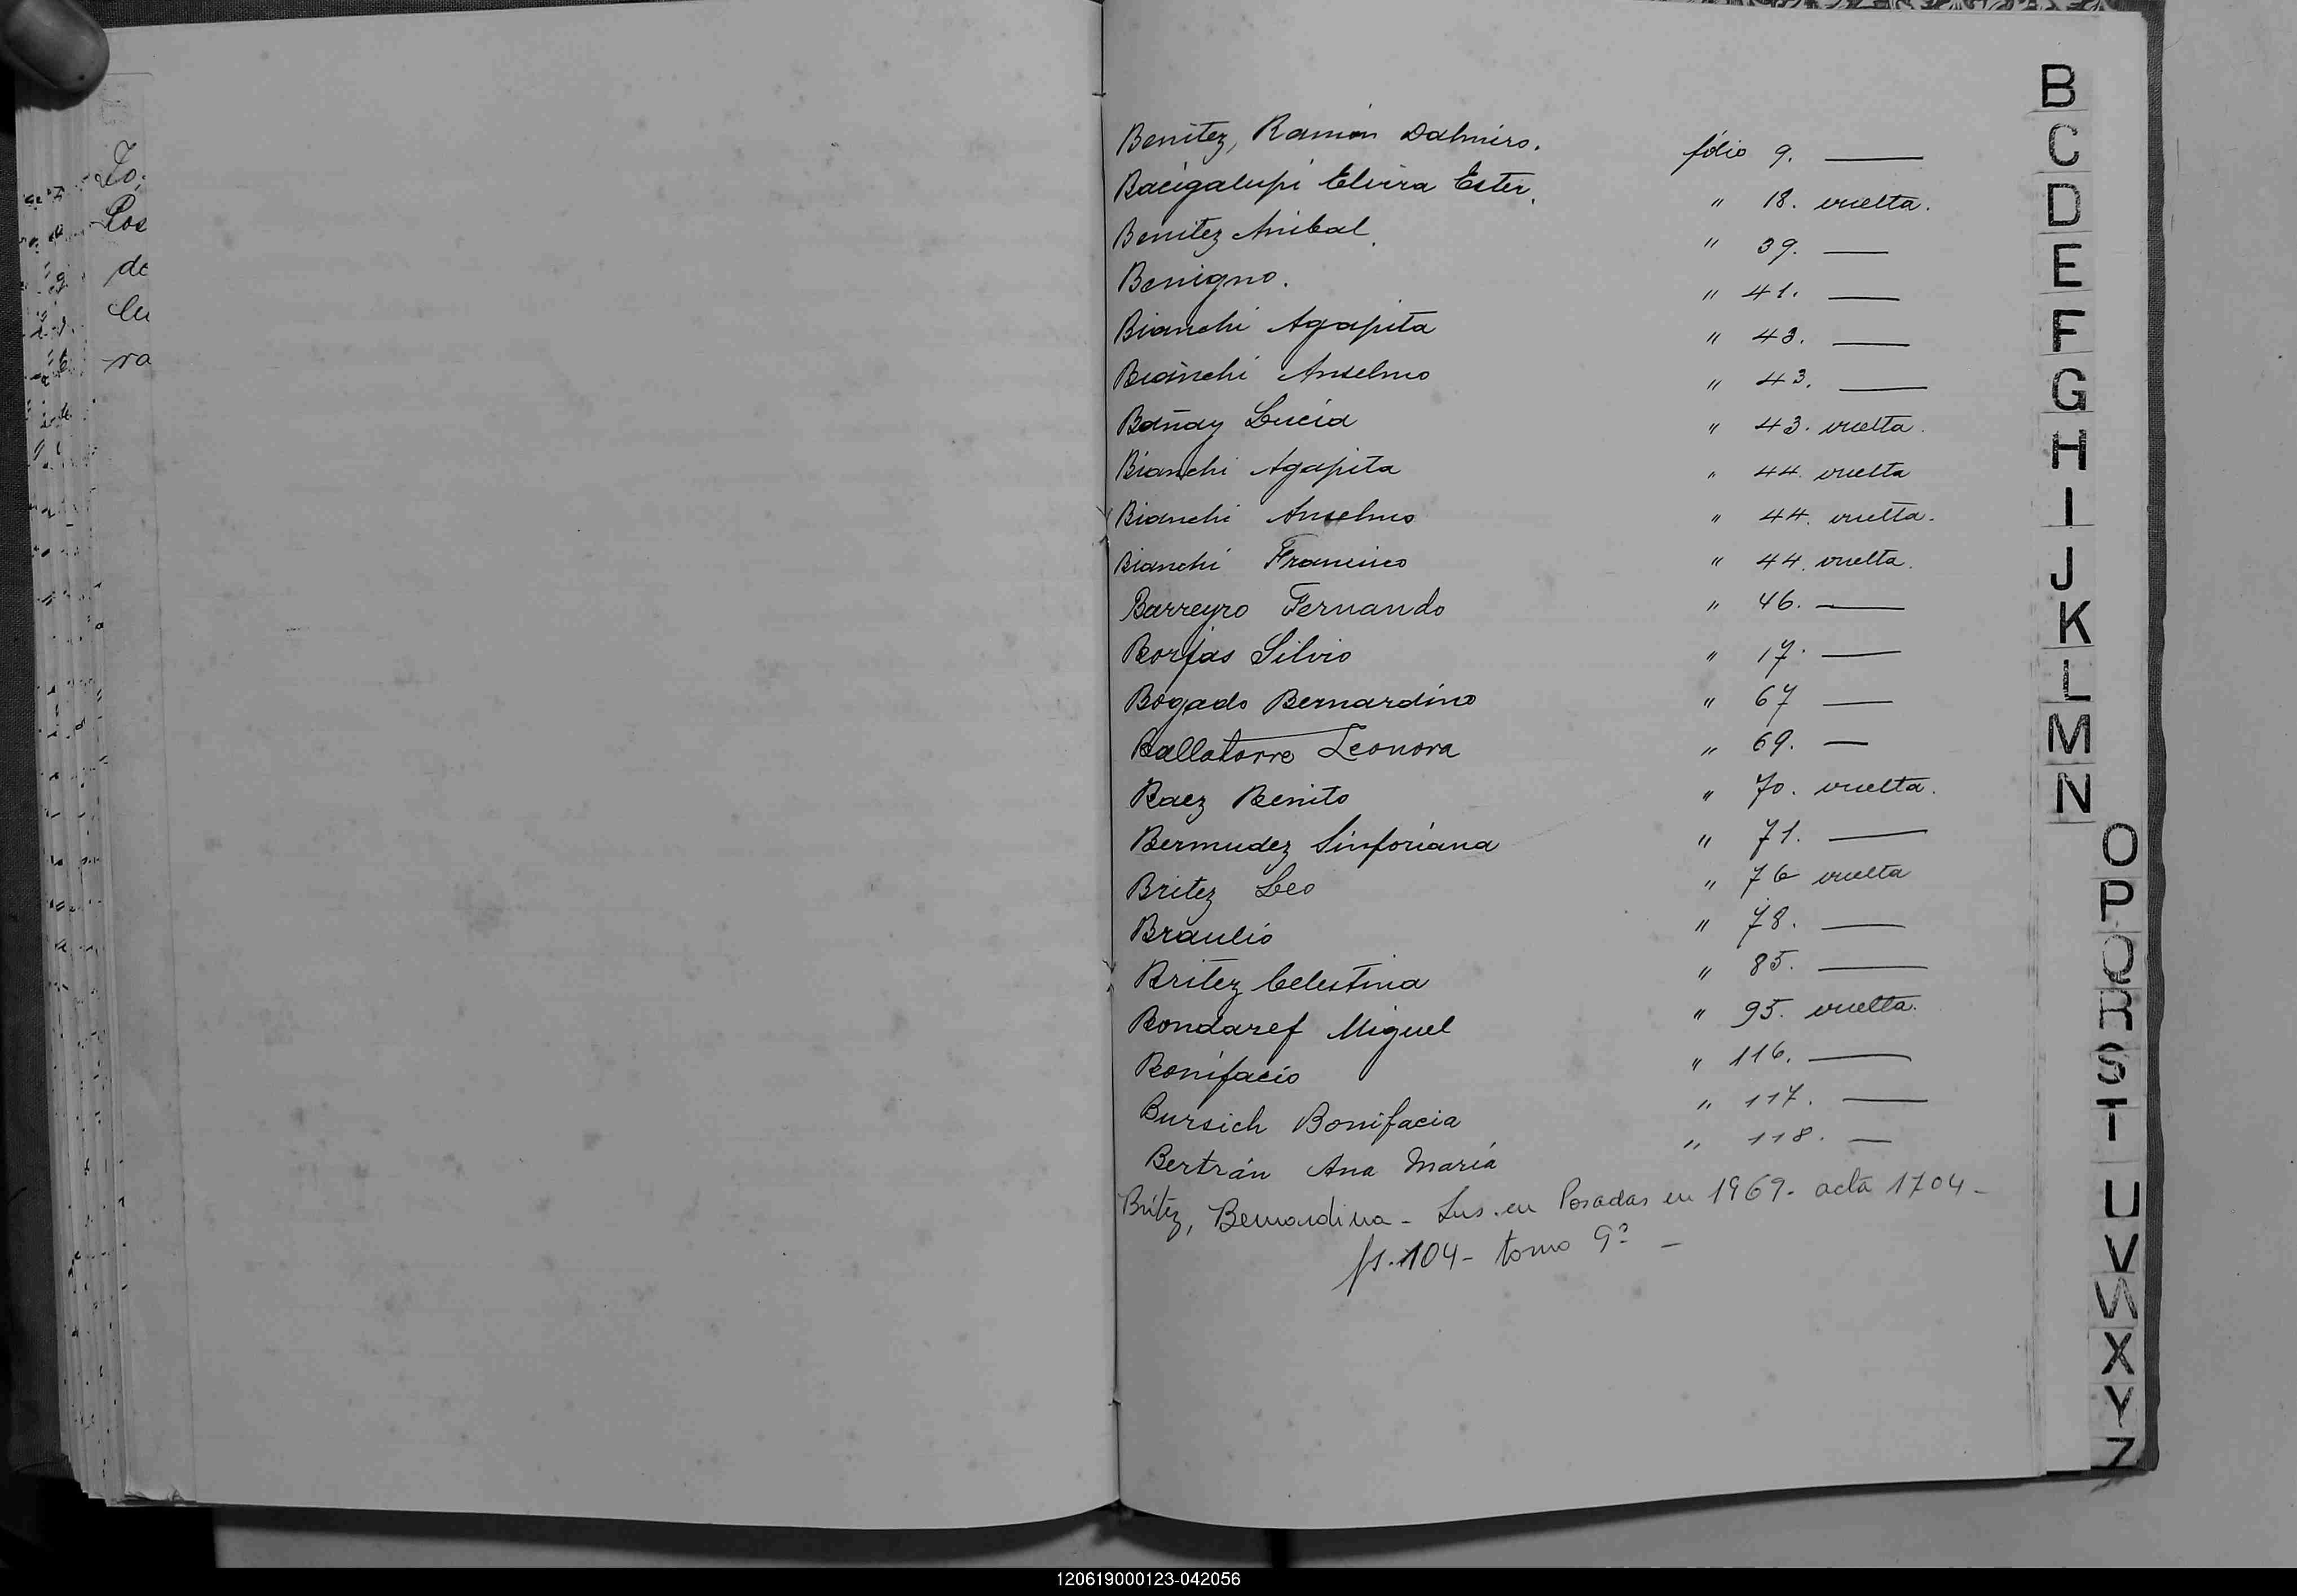 To;
Pos
de
Cu
ra
Benítez, Ramón Dalmiro. fólio 9. ——
Bacigalupi Elvira Ester. " 18. vuelta.
Benítez Anibal. " 39. ——
Benigno. " 41. ——
Bianchi Agapita " 43. ——
Bianchi Anselmo " 43. ——
Bañay Lucía " 43. vuelta.
Bianchi Agapita " 44. vuelta
Bianchi Anselmo " 44. vuelta.
Bianchi Francisco " 44. vuelta.
Barreyro Fernando " 46. ——
Borjas Silvio " 17. ——
Bogado Bernardino " 67 ——
Ballatorre Leonora " 69. ——
Baez Benito " 70. vuelta.
Bermudez Sinforiana " 71. ——
Britez Leo " 76 vuelta
Braulio " 78. ——
Britez Celestina " 85. ——
Bondaref Miguel " 95. vuelta.
Bonifacio " 116. ——
Bursich Bonifacia " 117. ——
Bertrán Ana María " 118. ——
Brítez, Bernardina - Ins. en Posadas en 1969. acta 1704 -
fs. 104 - tomo 9º -
B
C
D
E
F
G
H
I
J
K
L
M
N
O
P
Q
R
S
T
U
V
W
X
Y
Z
120619000123-042056